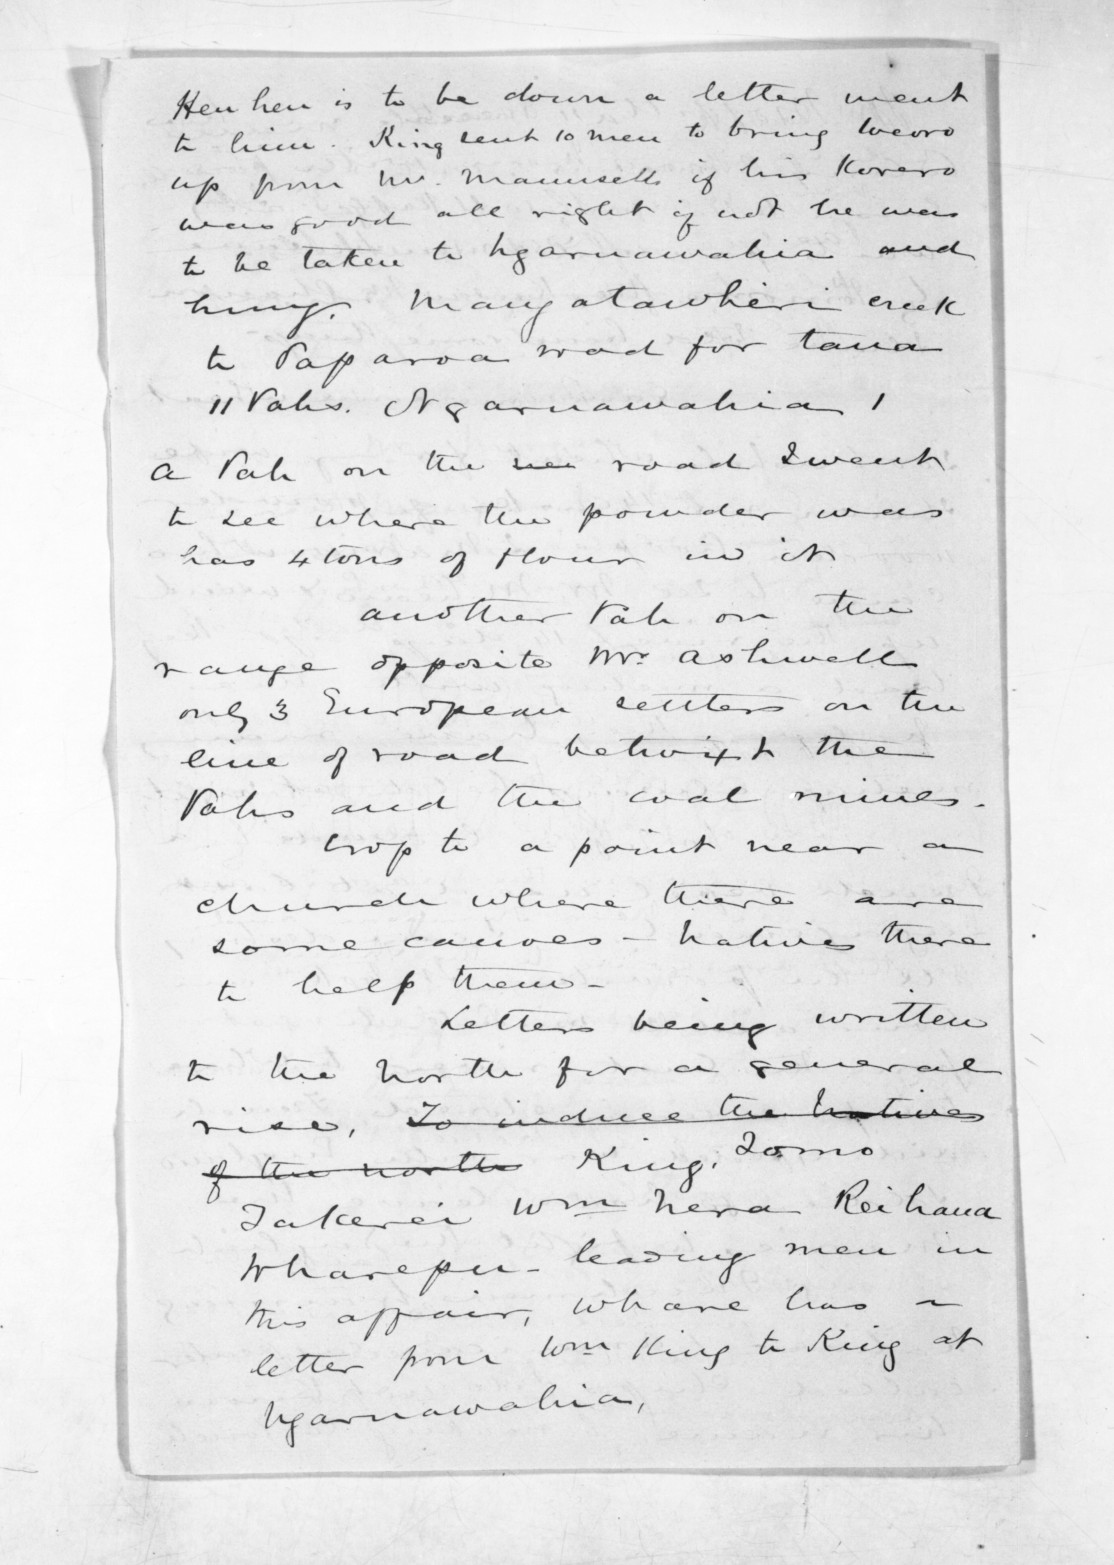 Heuheu is to be down a letter ment
to him. King sent 10 men to bring Weoro
up from Mr. Maunsells if his Korero
was good all right if not he was
to be taken to Ngarnawahia and
hung. Mangatawhiri creek
to Paparoa road for taua
11 Pahs. Ngarnawahia 1
a Pah on the road I went
to see where the powder was
has 4 tons of flour in it
another Pah on the
range opposite Mr. Ashwell
only 3 European settlers on the
line of road betwixt the
Pahs and the coal mines.
to a point near a
church where there are
some canoes - natives there
to help them -
Letters being written
to the North for a general
rise, To induce the Natives
of the north King. Tomo
Takerei Wm Nera Reihana
Wharepu - leading men in
this affair, whare has a
letter from Wm King to King at
Ngarnawahia,